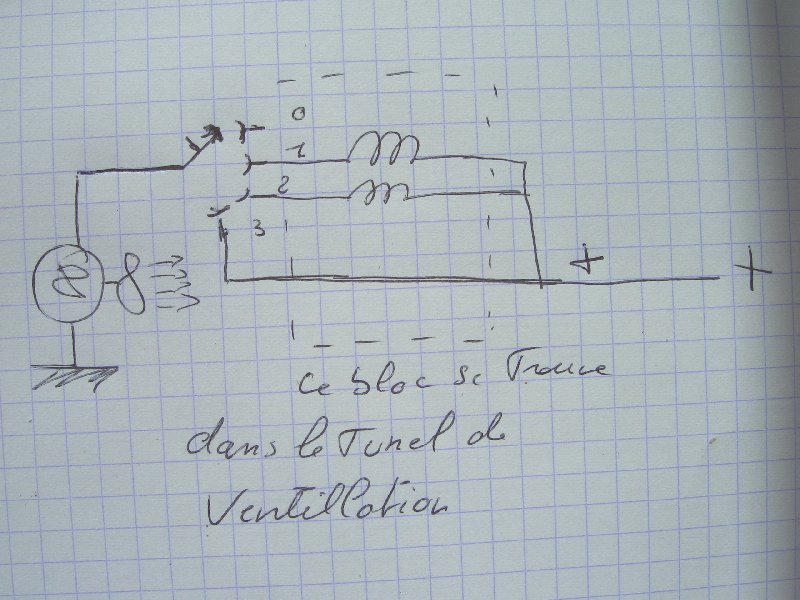 0
1
2
3
+ +
Ce bloc se Trouve
dans le Tunel de
Ventillation